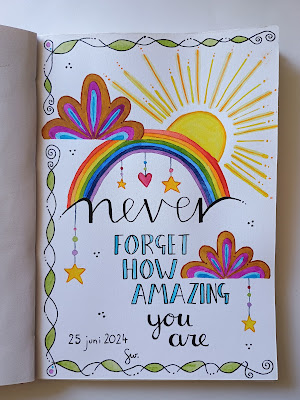 never
FORGET
HOW
AMAZING
you
are
25 juni 2024